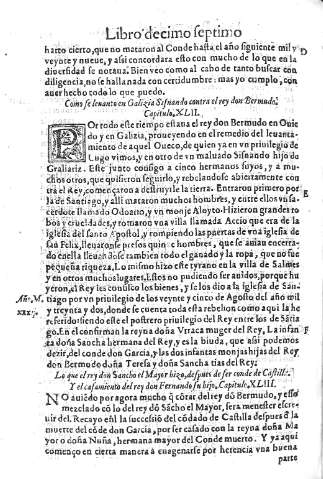 Libro decimo septimo
harto cierto, que no mataron al Conde hasta el año siguiente mil y
veynte y nueue, y assi concordara esto con mucho de lo que en la
diuersidad se notaua. Bien veo como al cabo de tanto buscar con
diligencia, no se halla nada con certidumbre: mas yo cumplo, con
auer hecho todo lo que puedo.
Como se leuanto en Galizia Sisnando contra el rey don Bermudo.
Capitulo, XLII.
POr todo este tiempo estaua el rey don Bermudo en Ouie
do y en Galizia, proueyendo en el remedio del leuanta-
miento de aquel Oueco, de quien ya en vn priuilegio de
Lugo vimos, y en otro de vn maluado Sisnando hijo de
Galiariz. Este junto consigo a cinco hermanos suyos, y a mu-
chos otros, que quisieron seguirlo, y rebelandose abiertamente con
tra el Rey, començaron a destruylle la tierra. Entraron primero por
la de Santiago, y alli mataron muchos hombres, y entre ellos vn sa-
cerdote llamado Odoario, y vn monje Aloyto. Hizieron grandes ro
bos y crueldades, y tomaron vna villa llamada Accio que era de la
iglesia del santo Apostol, y rompiendo las puertas de vna iglesia de
san Felix, lleuaronse presos quinze hombres, que se auian encerra-
do en ella lleuandose tambien todo el ganado y la ropa, que no fue
pequeña riqueza. Lo mismo hizo este tyrano en la villa de Salnes
y en otros muchos lugares. Estos no pudiendo ser auidos, porque hu
yeron, el Rey les confisco los bienes, y se los dio a la iglesia de San-
tiago por vn priuilegio de los veynte y cinco de Agosto del año mil
y treynta y dos, donde se cuenta toda esta rebelion como aqui la he
referido siendo este el postrero priuilegio del Rey entre los de Sátia
go. En el confirman la reyna doña Vrraca muger del Rey. La infan
ta doña Sancha hermana del Rey, y es la biuda, que assi podemos
dezir, del conde don Garcia, y las dos infantas monjas hijas del Rey
don Bermudo doña Teresa y doña Sancha tias del Rey.
Año. M.
xxx.
Lo que el rey don Sancho el Mayor hizo, despues de ser conde de Castilla.
Y el casamiento del rey don Fernando su hijo. Capitulo. XLIII.
NO auiédo por agora mucho q̃ côtar del rey dô Bermudo, y esso
mezclado cô lo del rey dô Sácho el Mayor, sera menester escre
uir del. Recayo en el la succesiô del côdado de Castilla despues d̃ la
muerte del côde don Garcia, por ser casado con la reyna doña Ma
yor o doña Nuña, hermana mayor del Conde muerto. Y ya aqui
començo en cierta manera a enagenarse por herencia vna buena
parte